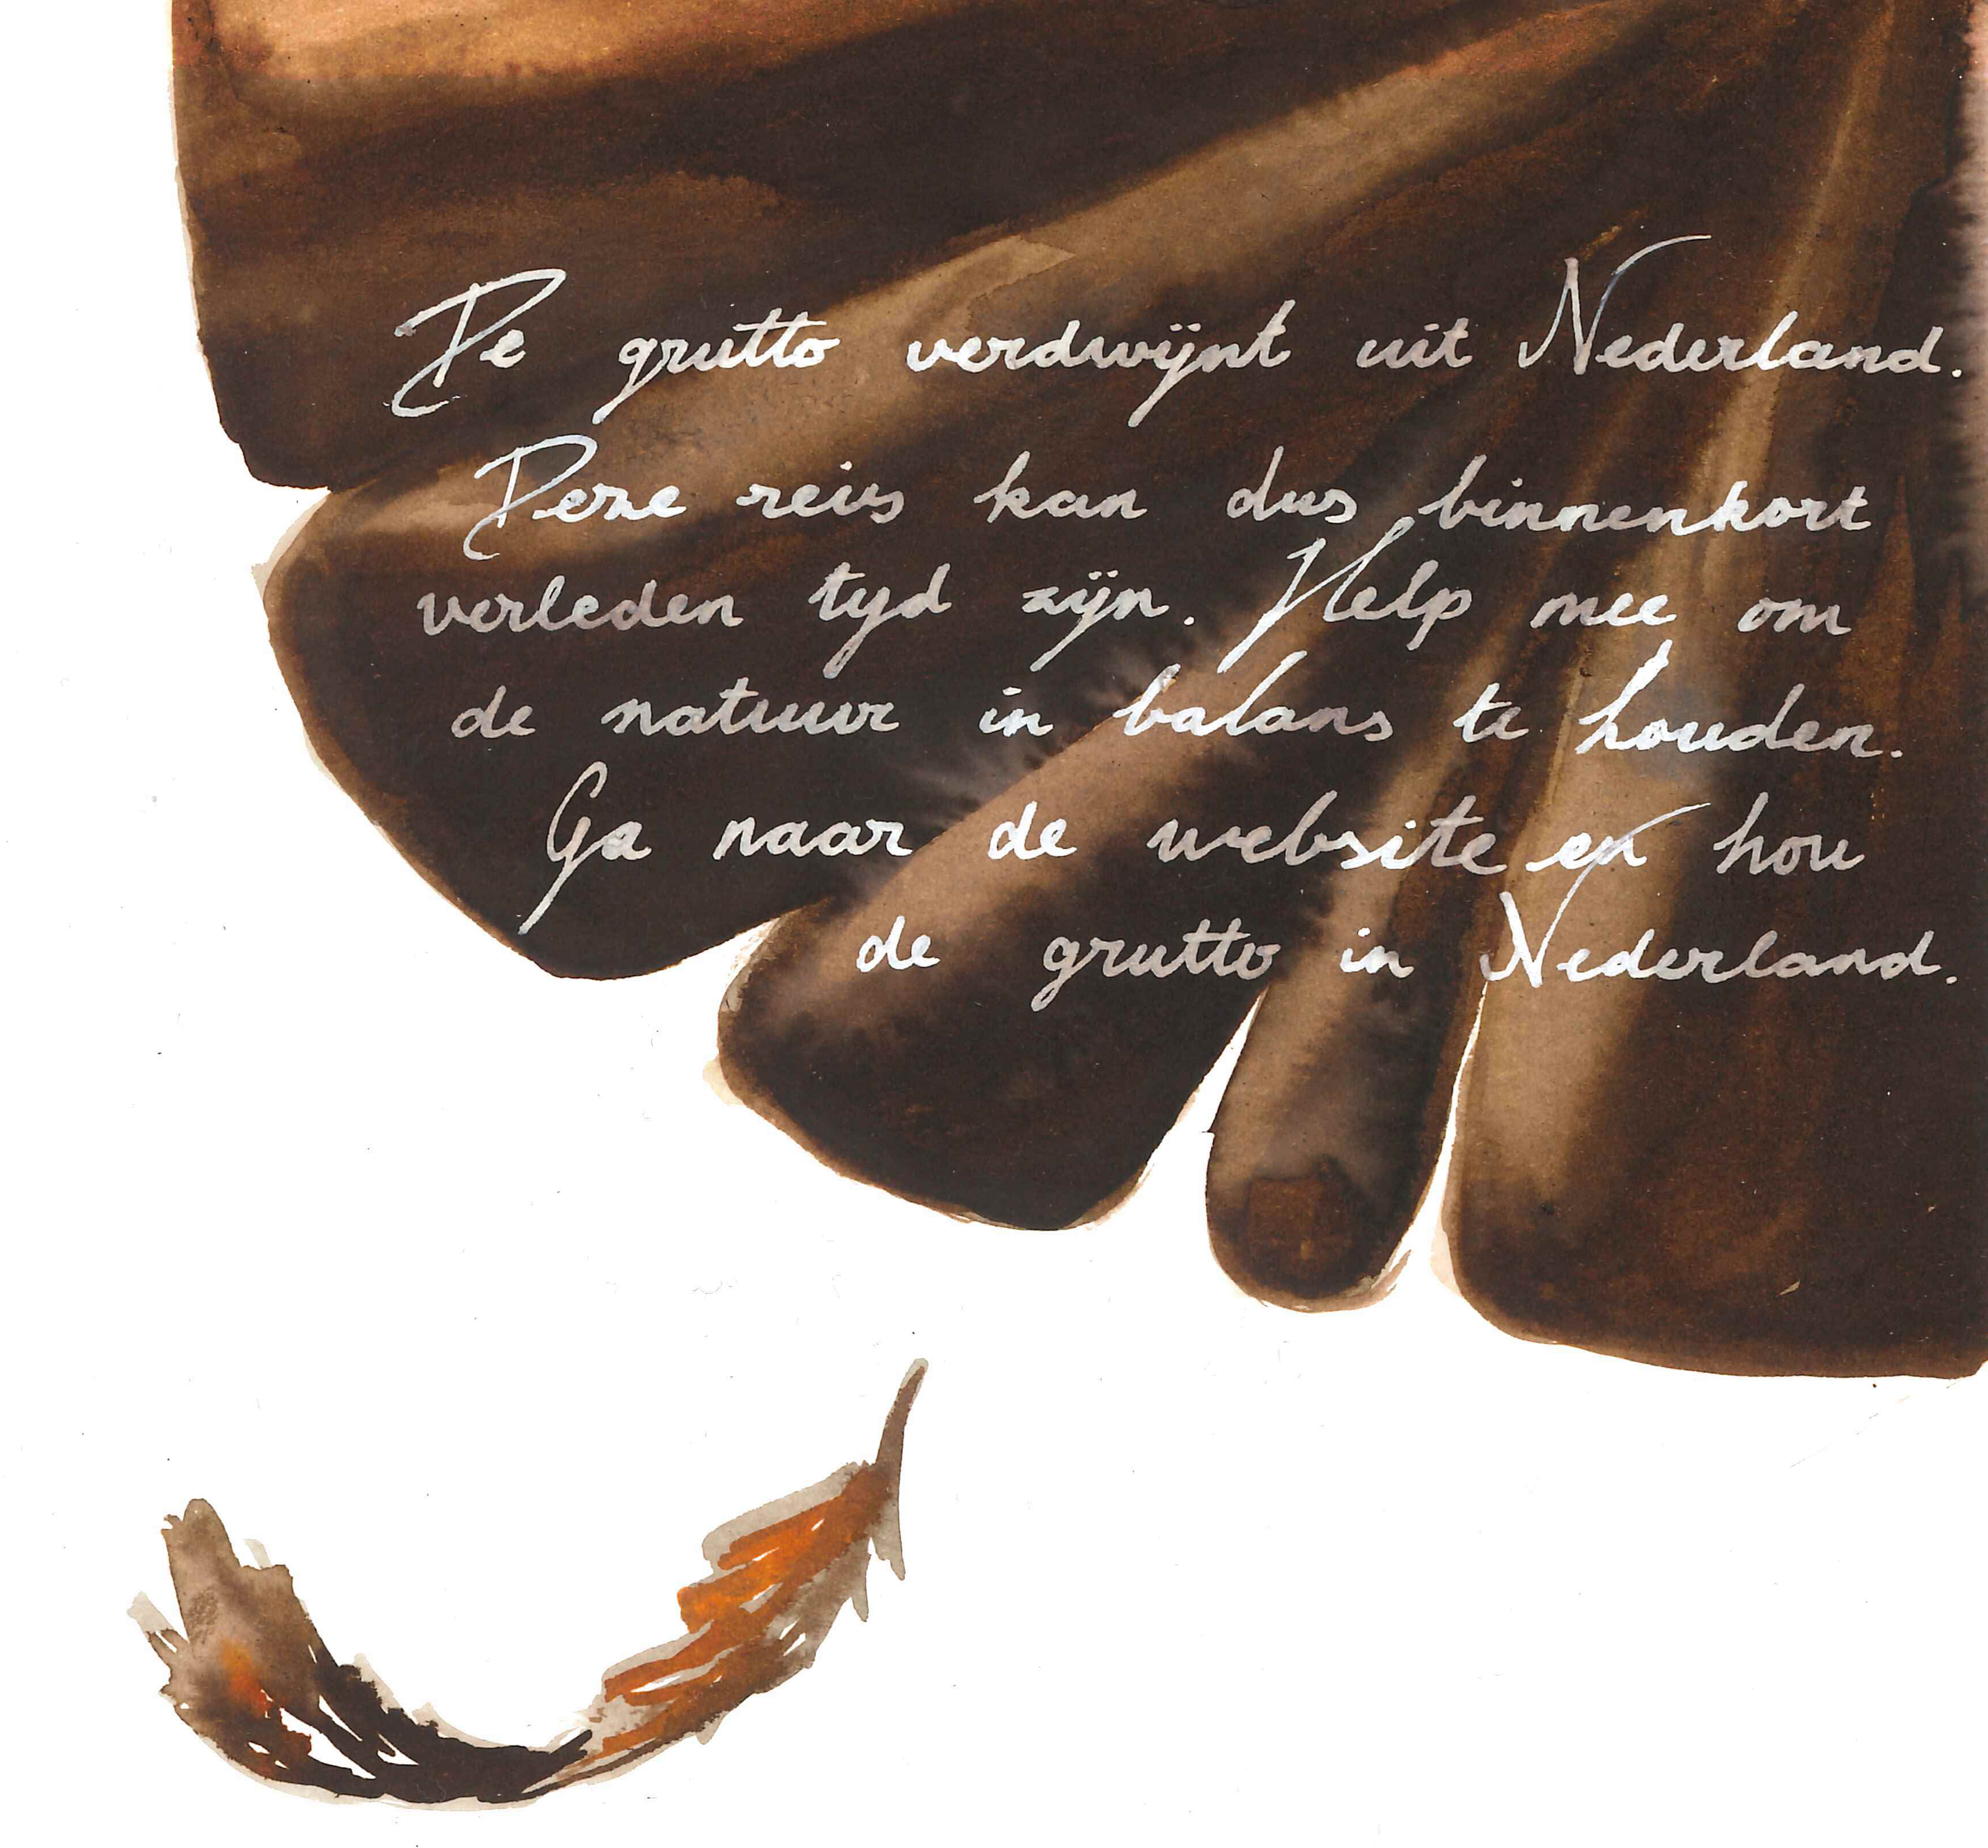 De grutto verdwijnt uit Nederland.
Deze reis kan dus binnenkort
verleden tijd zijn. Help mee om
de natuur in balans te houden.
Ga naar de website en hou
de grutto in Nederland.